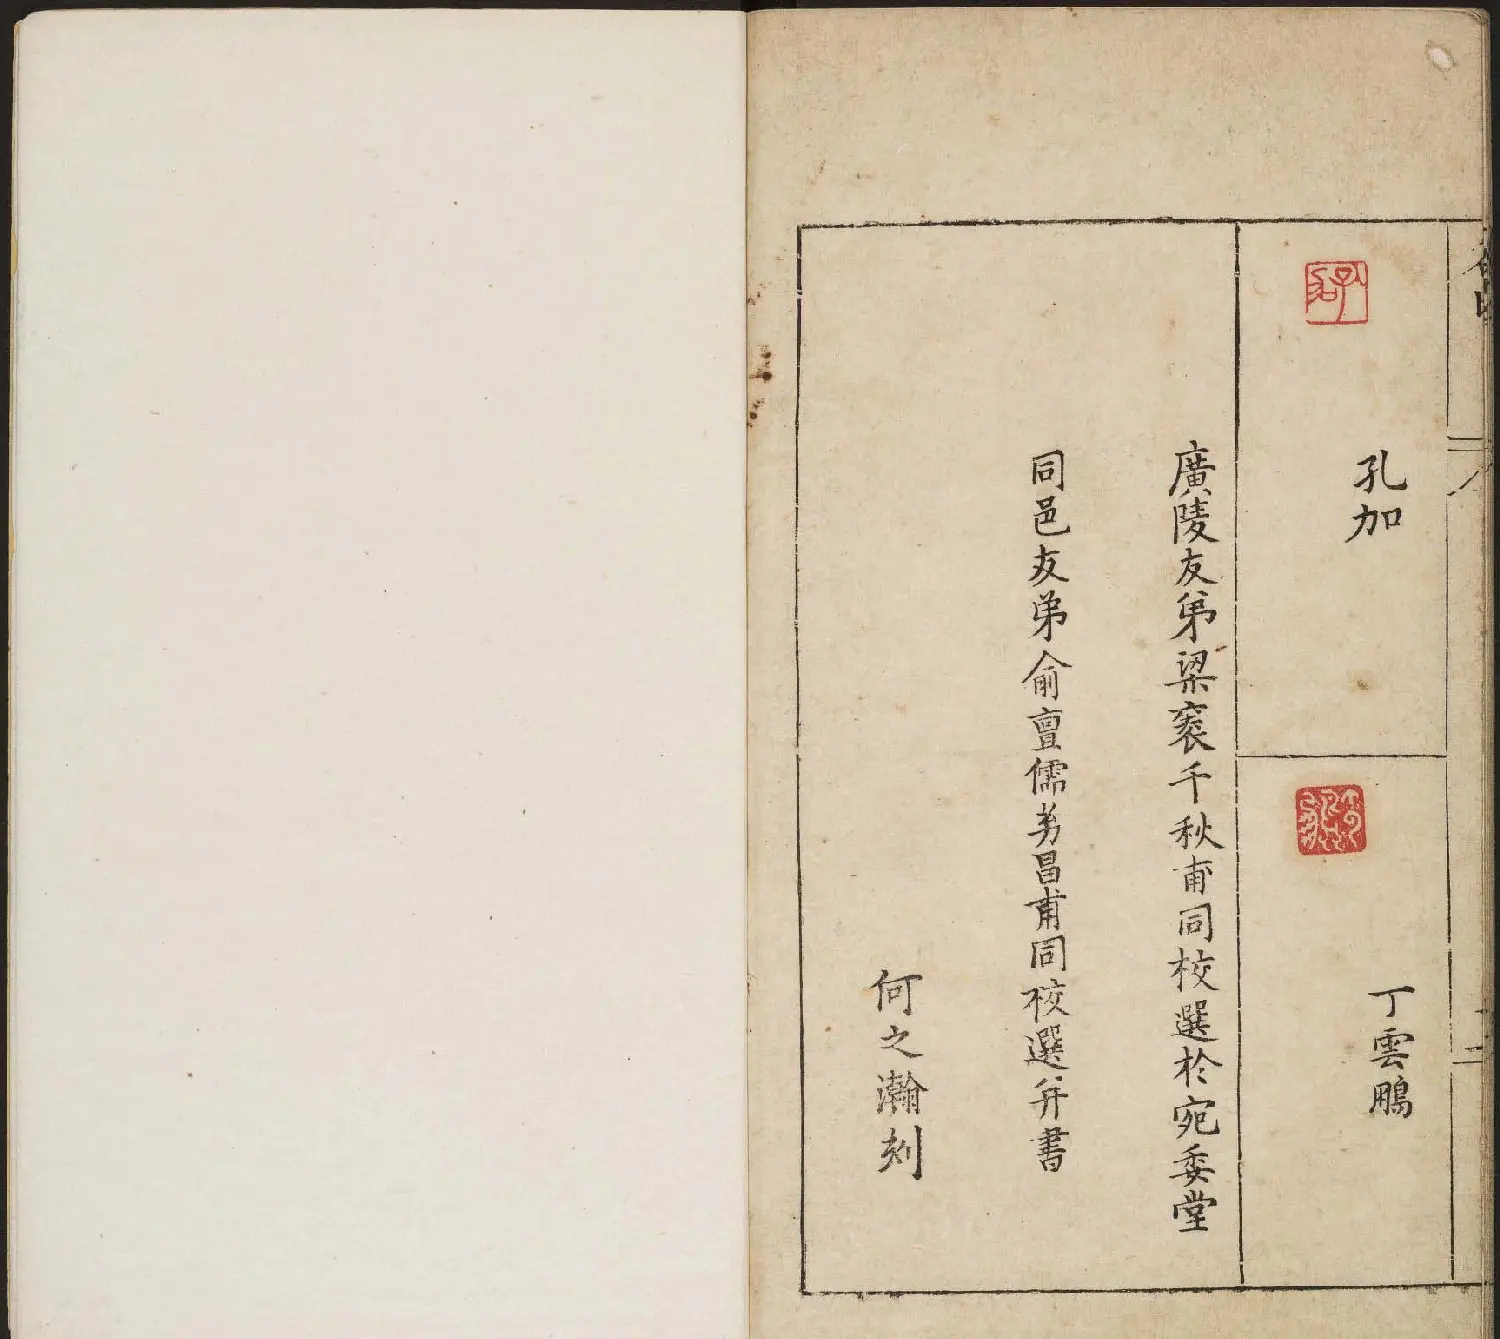 二
孔加
丁雲鵬
廣陵友弟梁袠千秋甫同校選於宛委堂
同邑友弟俞亶儒昌甫同校選并書
何之瀚刻